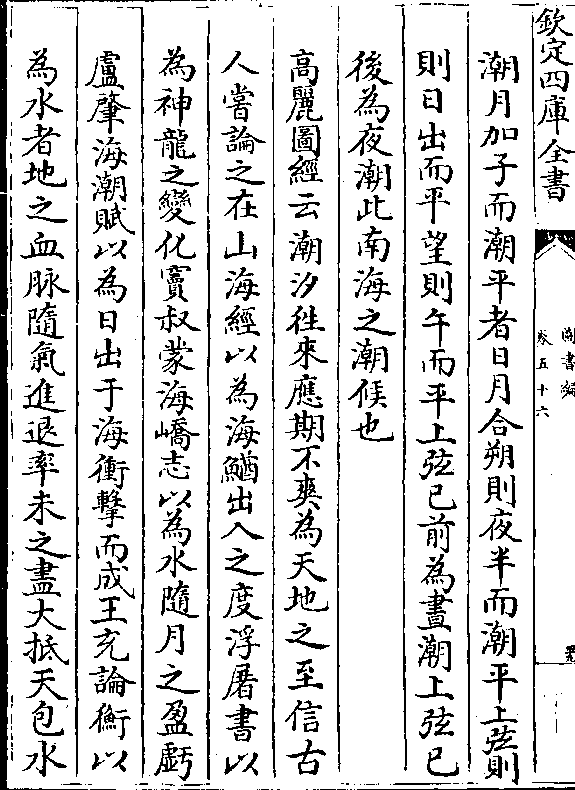 欽定四庫全書
圖書編
卷五十六
潮月加子而潮平者日月合朔則夜半而潮平上弦則
則日出而平望則午而平上弦已前為晝潮上弦已
後為夜潮此南海之潮候也
高麗圖經云潮汐徃來應期不爽為天地之至信古
人嘗論之在山海經以為海鰌出入之度浮屠書以
為神龍之變化竇叔蒙海嶠志以為水隨月之盈虧
盧肇海潮賦以為日出于海衝擊而成王充論衡以
為水者地之血脉隨氣進退率未之盡大抵天包水